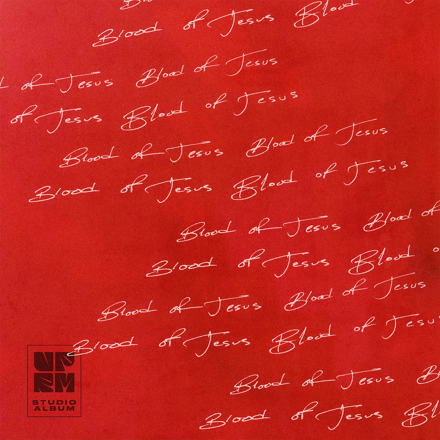 Blood of Jesus Blood
of Jesus Blood of Jesus
of Jesus Blood of Jesus
Blood of Jesus Blood of Jesus
Blood of Jesus Blood of Jesus
Blood of Jesus Blood of
Blood of Jesus Blood
Blood of Jesus Blood of Jesus
Blood of Jesus Blood of Jesus
Blood of Jesus
Blood of Jesus
UPRM
STUDIO
ALBUM